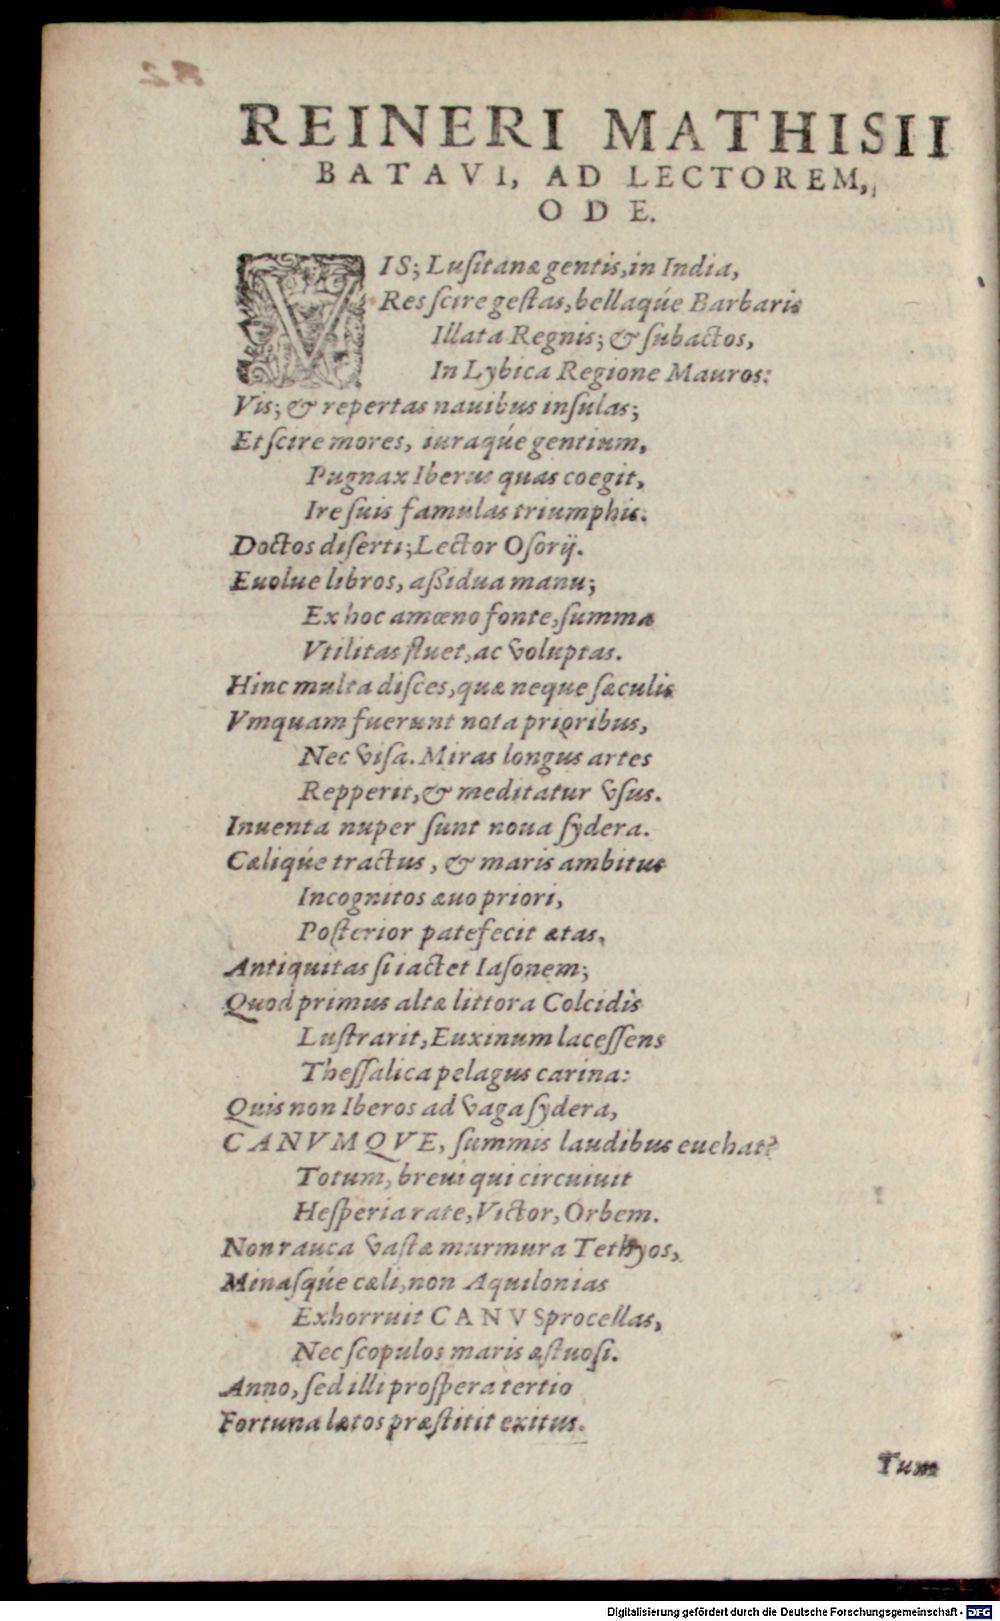 REINERI MATHISII
BATAVI, AD LECTOREM,
ODE.
VIS; Luſitanæ gentis, in India,
Res ſcire geſtas, bellaqúe Barbaris
Illata Regnis; & ſubactos,
In Lybica Regione Mauros:
Vis; & repertas nauibus inſulas;
Et ſcire mores, iuraqúe gentium,
Pugnax Iberus quas coegit,
Ire ſuis famulas triumphis.
Doctos diſerti; Lector Oſorij.
Euolue libros, aſsidua manu;
Ex hoc amœno fonte, ſumma
Vtilitas fluet, ac voluptas.
Hinc multa diſces, quæ neque ſæculis
Vmquam fuerunt nota prioribus,
Nec viſa. Miras longus artes
Repperit, & meditatur vſus.
Inuenta nuper ſunt noua ſydera.
Cæliqúe tractus, & maris ambitus
Incognitos æuo priori,
Poſterior patefecit ætas.
Antiquitas ſi iactet Iaſonem;
Quod primus altæ littora Colcidis
Luſtrarit, Euxinum laceſſens
Theſſalica pelagus carina:
Quis non Iberos ad vaga ſydera,
CANVMQVE, ſummis laudibus euehat?
Totum, breui qui circuiuit
Heſperia rate, Victor, Orbem.
Non rauca vaſtæ murmura Tethyos,
Minaſqúe cæli, non Aquilonias
Exhorruit CANVS procellas,
Nec ſcopulos maris æſtuoſi.
Anno, ſed illi proſpera tertio
Fortuna lætos præſtitit exitus.
Tum
Digitalisierung gefördert durch die Deutsche Forschungsgemeinschaft - DFG